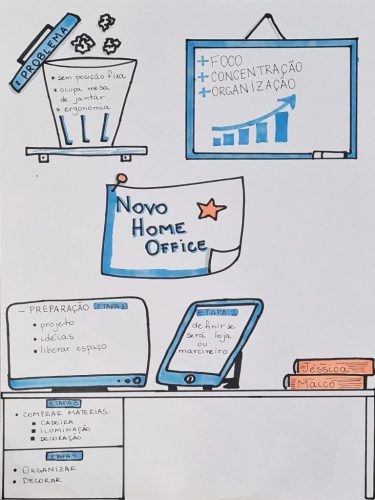 ! PROBLEMA
• sem posição fixa
• ocupa mesa
de jantar
• ergonomia
+ FOCO
+ CONCENTRAÇÃO
+ ORGANIZAÇÃO
NOVO
HOME
OFFICE
– PREPARAÇÃO ETAPA 1
• projeto
• idéias
• liberar espaço
ETAPA 2
definir se
será loja
ou
marcineiro
Jéssica
Maicó
ETAPA 3
• COMPRAR MATERIAS
▪ CADEIRA
▪ ILUMINAÇÃO
▪ DECORAÇÃO
ETAPA 4
• ORGANIZAR
• DECORAR